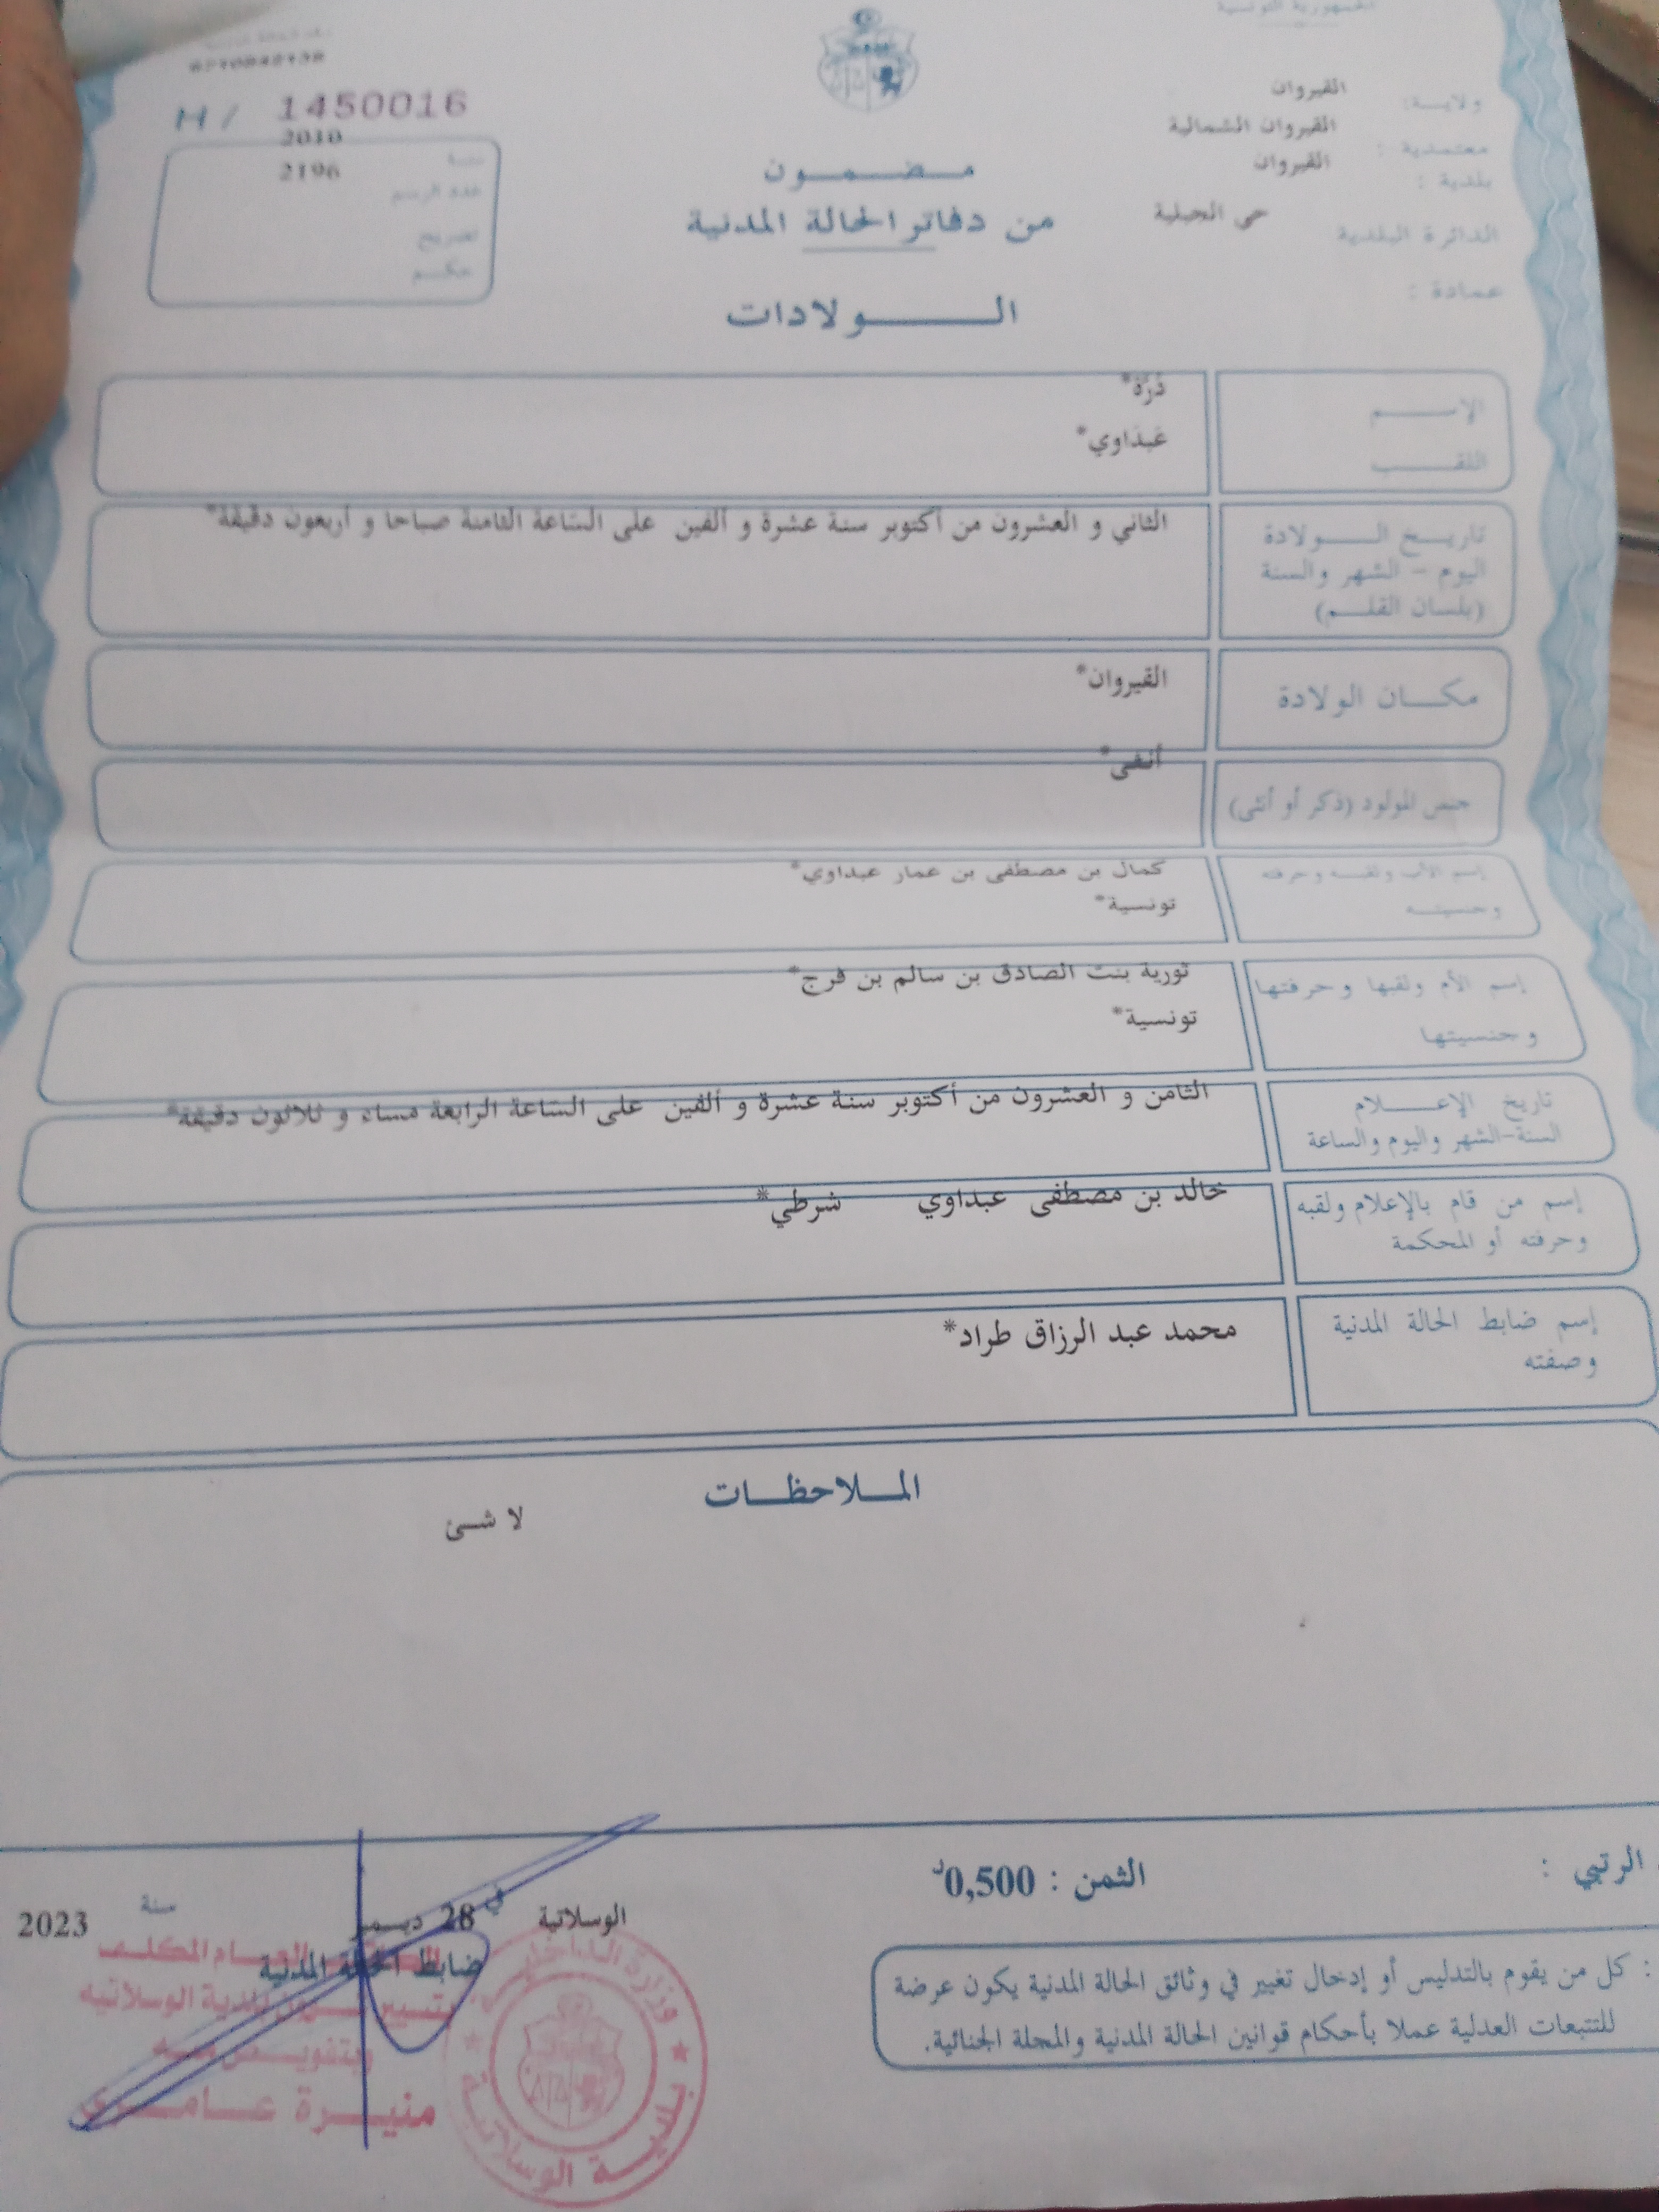 الجمهورية التونسية
ولاية: القيروان
معتمدية : القيروان الشمالية
بلدية : القيروان
الدائرة البلدية حي الجبلية
عمادة :
H / 1450016
سنة 2010
عدد الرسم 2196
تصريح
حكم
مضمون
من دفاتر الحالة المدنية
الولادات
الإسم دُرّة*
اللقب عبداوي*
تاريخ الولادة
اليوم - الشهر والسنة
(بلسان القلم)
الثاني و العشرون من أكتوبر سنة عشرة و ألفين على الساعة الثامنة صباحا و أربعون دقيقة*
مكان الولادة القيروان*
جنس المولود (ذكر أو أنثى) أنثى*
إسم الأب ولقبه وحرفته كمال بن مصطفى بن عمار عبداوي*
وجنسيته تونسية*
إسم الأم ولقبها وحرفتها ثورية بنت الصادق بن سالم بن فرج*
وجنسيتها تونسية*
تاريخ الإعلام
السنة-الشهر واليوم والساعة
الثامن و العشرون من أكتوبر سنة عشرة و ألفين على الساعة الرابعة مساء و ثلاثون دقيقة*
إسم من قام بالإعلام ولقبه
وحرفته أو المحكمة
خالد بن مصطفى عبداوي شرطي*
إسم ضابط الحالة المدنية
وصفته
محمد عبد الرزاق طراد*
الملاحظات
لا شئ
الرتبي :
الثمن : 0,500د
الوسلاتية في 28 ديسمبر سنة 2023
ضابط الحالة المدنية
العام المكلف
بتسيير شؤون بلدية الوسلاتية
وبتفويض منه
منيرة عامري
وزارة الداخلية
بلدية الوسلاتية
: كل من يقوم بالتدليس أو إدخال تغيير في وثائق الحالة المدنية يكون عرضة
للتتبعات العدلية عملا بأحكام قوانين الحالة المدنية والمجلة الجنائية.